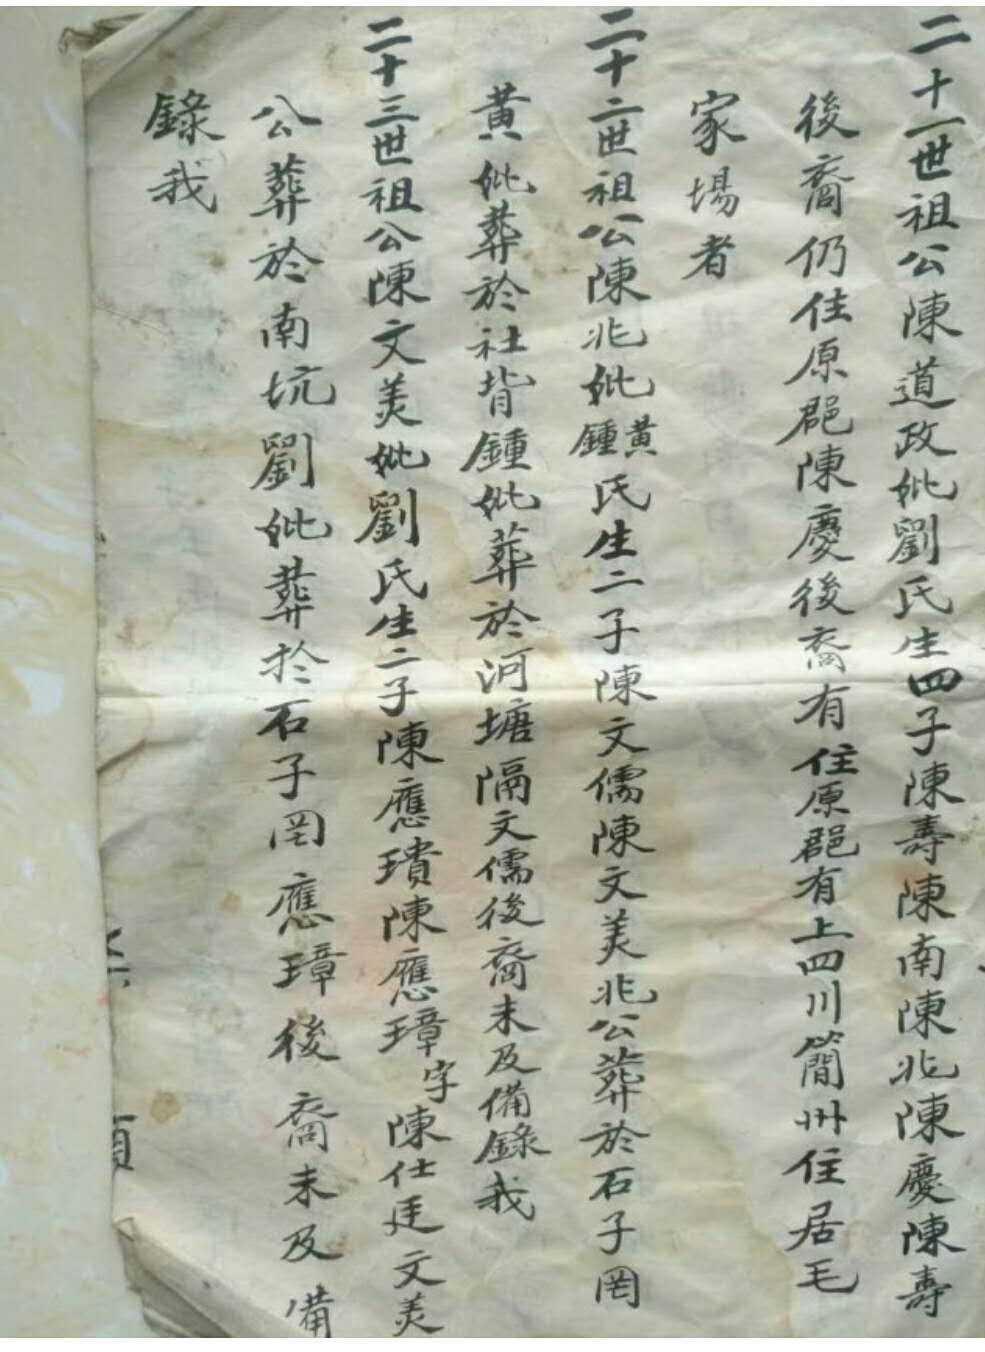 二十一世祖公陳道政妣劉氏生四子陳壽陳南陳兆陳慶陳壽
後裔仍住原郡陳慶後裔有住原郡有上四川簡州住居毛
家場者
二十二世祖公陳兆妣黃鍾氏生二子陳文儒陳文美兆公葬於石子岡
黃妣葬於社背鍾妣葬於河塘隔文儒後裔未及備錄我
二十三世祖公陳文美妣劉氏生二子陳應璝陳應璋字陳仕廷文美
公葬於南坑劉妣葬於石子岡應璋後裔未及備
錄我